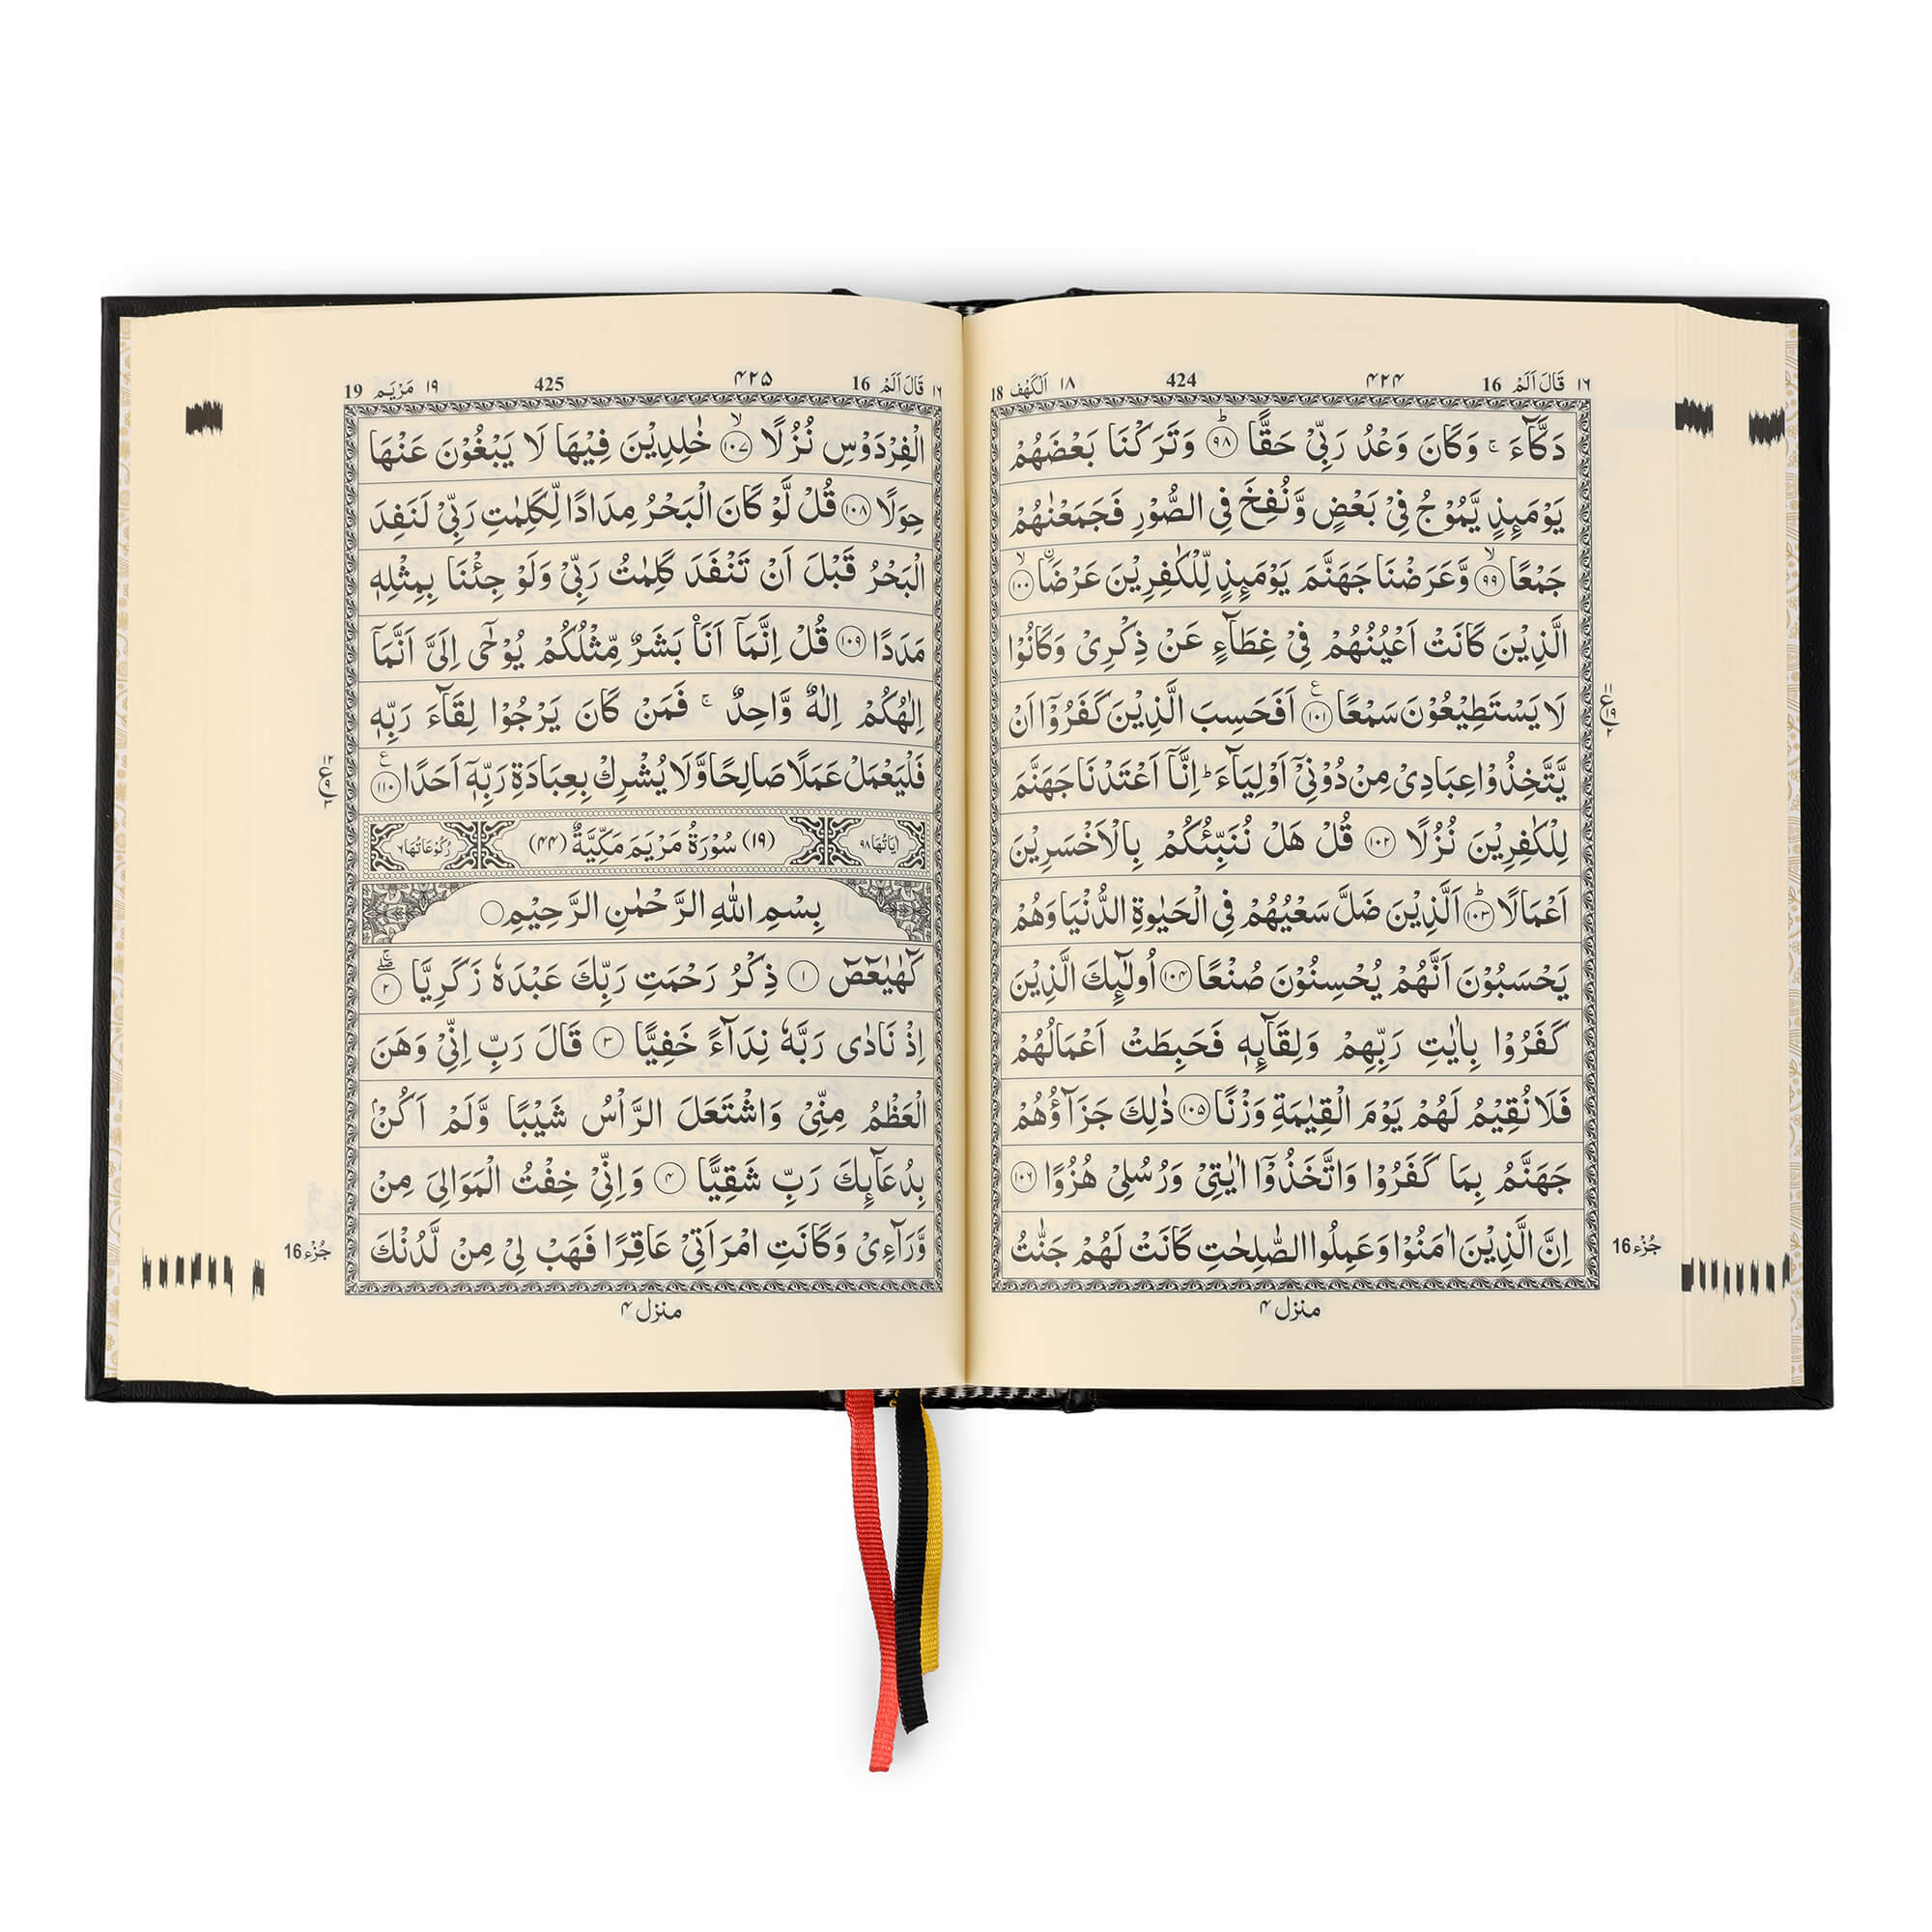 ١٦ قَالَ اَلَمْ 16 ۴۲۴ 424 ١٨ اَلْكَهْف 18
دَكَّآءَ ۚ وَكَانَ وَعْدُ رَبِّىْ حَقًّا ؕ ﴿۹۸﴾ وَتَرَكْنَا بَعْضَهُمْ
يَوْمَىِٕذٍ يَّمُوْجُ فِىْ بَعْضٍ وَّنُفِخَ فِى الصُّوْرِ فَجَمَعْنٰهُمْ
جَمْعًا ۙ ﴿۹۹﴾ وَّعَرَضْنَا جَهَنَّمَ يَوْمَىِٕذٍ لِّلْكٰفِرِيْنَ عَرْضَا ۙ ﴿۱۰۰﴾
الَّذِيْنَ كَانَتْ اَعْيُنُهُمْ فِىْ غِطَآءٍ عَنْ ذِكْرِىْ وَكَانُوْا
لَا يَسْتَطِيْعُوْنَ سَمْعًا ﴿۱۰۱﴾ ع اَفَحَسِبَ الَّذِيْنَ كَفَرُوْۤا اَنْ
يَّتَّخِذُوْا عِبَادِىْ مِنْ دُوْنِىْۤ اَوْلِيَآءَ ؕ اِنَّاۤ اَعْتَدْنَا جَهَنَّمَ
لِلْكٰفِرِيْنَ نُزُلًا ﴿۱۰۲﴾ قُلْ هَلْ نُنَبِّئُكُمْ بِالْاَخْسَرِيْنَ
اَعْمَالًا ؕ ﴿۱۰۳﴾ اَلَّذِيْنَ ضَلَّ سَعْيُهُمْ فِى الْحَيٰوةِ الدُّنْيَا وَهُمْ
يَحْسَبُوْنَ اَنَّهُمْ يُحْسِنُوْنَ صُنْعًا ﴿۱۰۴﴾ اُولٰٓىِٕكَ الَّذِيْنَ
كَفَرُوْا بِاٰيٰتِ رَبِّهِمْ وَلِقَآىِٕهٖ فَحَبِطَتْ اَعْمَالُهُمْ
فَلَا نُقِيْمُ لَهُمْ يَوْمَ الْقِيٰمَةِ وَزْنًا ﴿۱۰۵﴾ ذٰلِكَ جَزَآؤُهُمْ
جَهَنَّمُ بِمَا كَفَرُوْا وَاتَّخَذُوْۤا اٰيٰتِىْ وَرُسُلِىْ هُزُوًا ﴿۱۰۶﴾
اِنَّ الَّذِيْنَ اٰمَنُوْا وَعَمِلُوا الصّٰلِحٰتِ كَانَتْ لَهُمْ جَنّٰتُ
جُزْء 16
منزل ۴
١٦ قَالَ اَلَمْ 16 ۴۲۵ 425 ١٩ مَرْيَم 19
الْفِرْدَوْسِ نُزُلًا ۙ ﴿۱۰۷﴾ خٰلِدِيْنَ فِيْهَا لَا يَبْغُوْنَ عَنْهَا
حِوَلًا ﴿۱۰۸﴾ قُلْ لَّوْ كَانَ الْبَحْرُ مِدَادًا لِّكَلِمٰتِ رَبِّىْ لَنَفِدَ
الْبَحْرُ قَبْلَ اَنْ تَنْفَدَ كَلِمٰتُ رَبِّىْ وَلَوْ جِئْنَا بِمِثْلِهٖ
مَدَدًا ﴿۱۰۹﴾ قُلْ اِنَّمَاۤ اَنَا۟ بَشَرٌ مِّثْلُكُمْ يُوْحٰۤى اِلَىَّ اَنَّمَاۤ
اِلٰهُكُمْ اِلٰهٌ وَّاحِدٌ ۚ فَمَنْ كَانَ يَرْجُوْا لِقَآءَ رَبِّهٖ
فَلْيَعْمَلْ عَمَلًا صَالِحًا وَّلَا يُشْرِكْ بِعِبَادَةِ رَبِّهٖۤ اَحَدًا ﴿۱۱۰﴾ ع
اٰيَاتُهَا ٩٨ (١٩) سُوْرَةُ مَرْيَمَ مَكِّيَّةٌ (۴۴) رُكُوْعَاتُهَا ٦
بِسْمِ اللهِ الرَّحْمٰنِ الرَّحِيْمِ
كٓهٰيٰعٓصٓ ﴿۱﴾ ذِكْرُ رَحْمَتِ رَبِّكَ عَبْدَهٗ زَكَرِيَّا ﴿۲﴾
اِذْ نَادٰى رَبَّهٗ نِدَآءً خَفِيًّا ﴿۳﴾ قَالَ رَبِّ اِنِّىْ وَهَنَ
الْعَظْمُ مِنِّىْ وَاشْتَعَلَ الرَّاْسُ شَيْبًا وَّلَمْ اَكُنْۢ
بِدُعَآىِٕكَ رَبِّ شَقِيًّا ﴿۴﴾ وَاِنِّىْ خِفْتُ الْمَوَالِىَ مِنْ
وَّرَآءِىْ وَكَانَتِ امْرَاَتِىْ عَاقِرًا فَهَبْ لِىْ مِنْ لَّدُنْكَ
جُزْء 16
منزل ۴